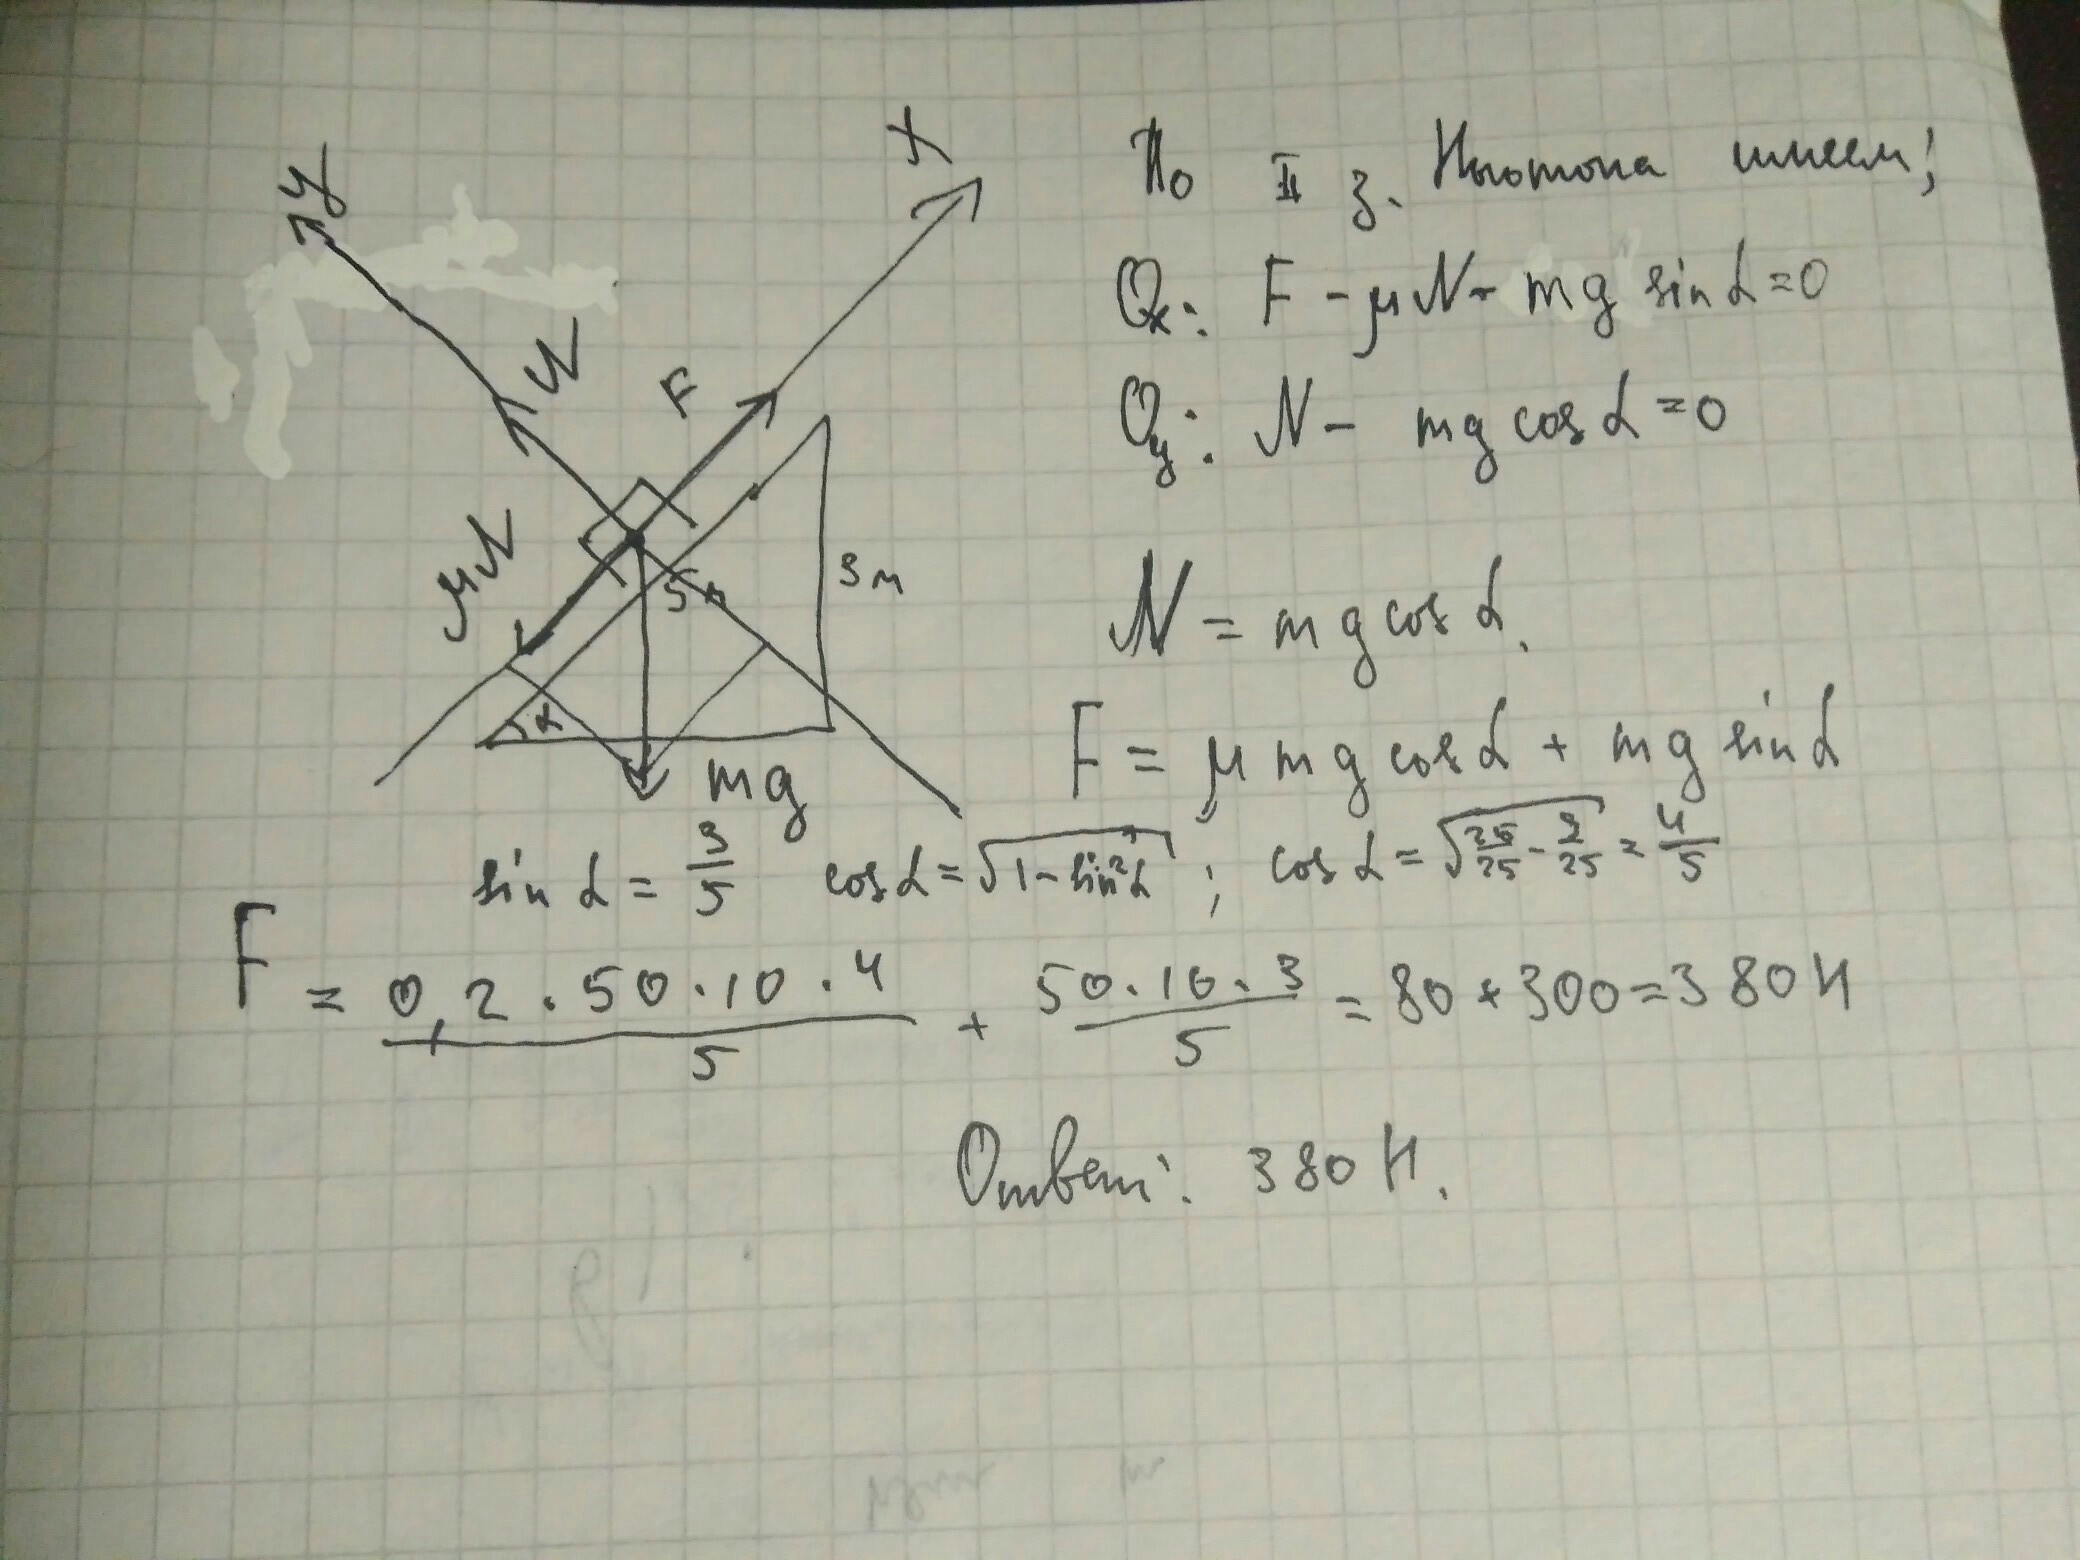 y
x
По II з. Ньютона имеем;
Ox: F - μN - mg sin α = 0
N
F
Oy: N - mg cos α = 0
μN
5 м
3 м
N = mg cos α.
α
mg
F = μ mg cos α + mg sin α
sin α = 3/5 cos α = √(1 - sin²α) ; cos α = √(25/25 - 9/25) = 4/5
F = 0,2 · 50 · 10 · 4 / 5 + 50 · 10 · 3 / 5 = 80 + 300 = 380 Н
Ответ: 380 Н.